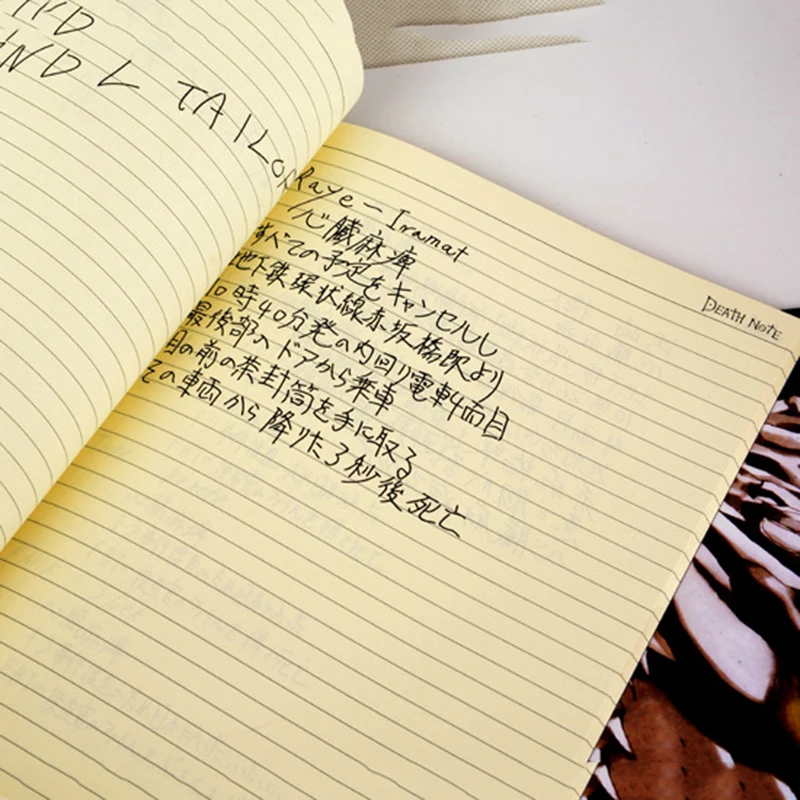 ND
IND L TAILOR
DEATH NOTE
Raye — Iramat
心臓麻痺
すべての予定をキャンセルし
地下鉄環状線赤坂橋駅より
10時40分発の内回り電車4両目
最後部のドアから乗車
目の前の茶封筒を手に取る
その車両から降りた3秒後死亡